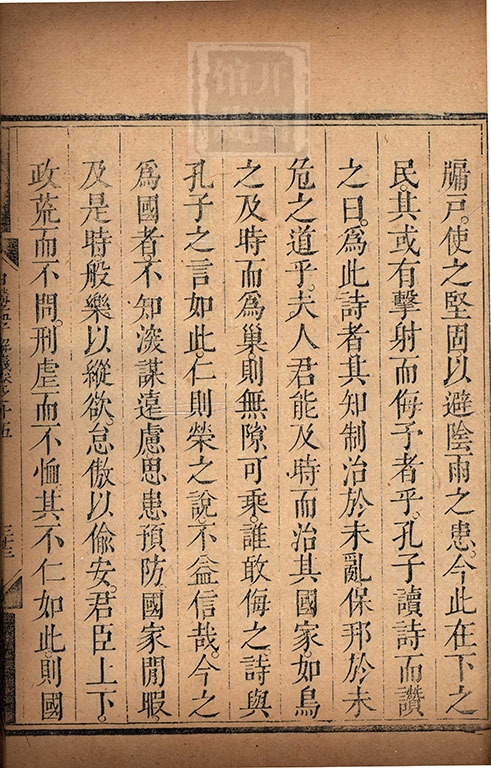 牖戸。使之堅固以避陰雨之患。今此在下之
民。其或有擊射而侮予者乎。孔子讀詩而讚
之曰。爲此詩者其知制治於未亂保邦於未
危之道乎。夫人君能及時而治其國家。如鳥
之及時而爲巢。則無隙可乘。誰敢侮之。詩與
孔子之言如此。仁則榮之說。不益信哉。今之
爲國者。不知深謀遠慮思患預防國家閒暇。
及是時般樂以縱欲。怠傲以偷安。君臣上下。
政荒而不問。刑虐而不恤。其不仁如此。則國